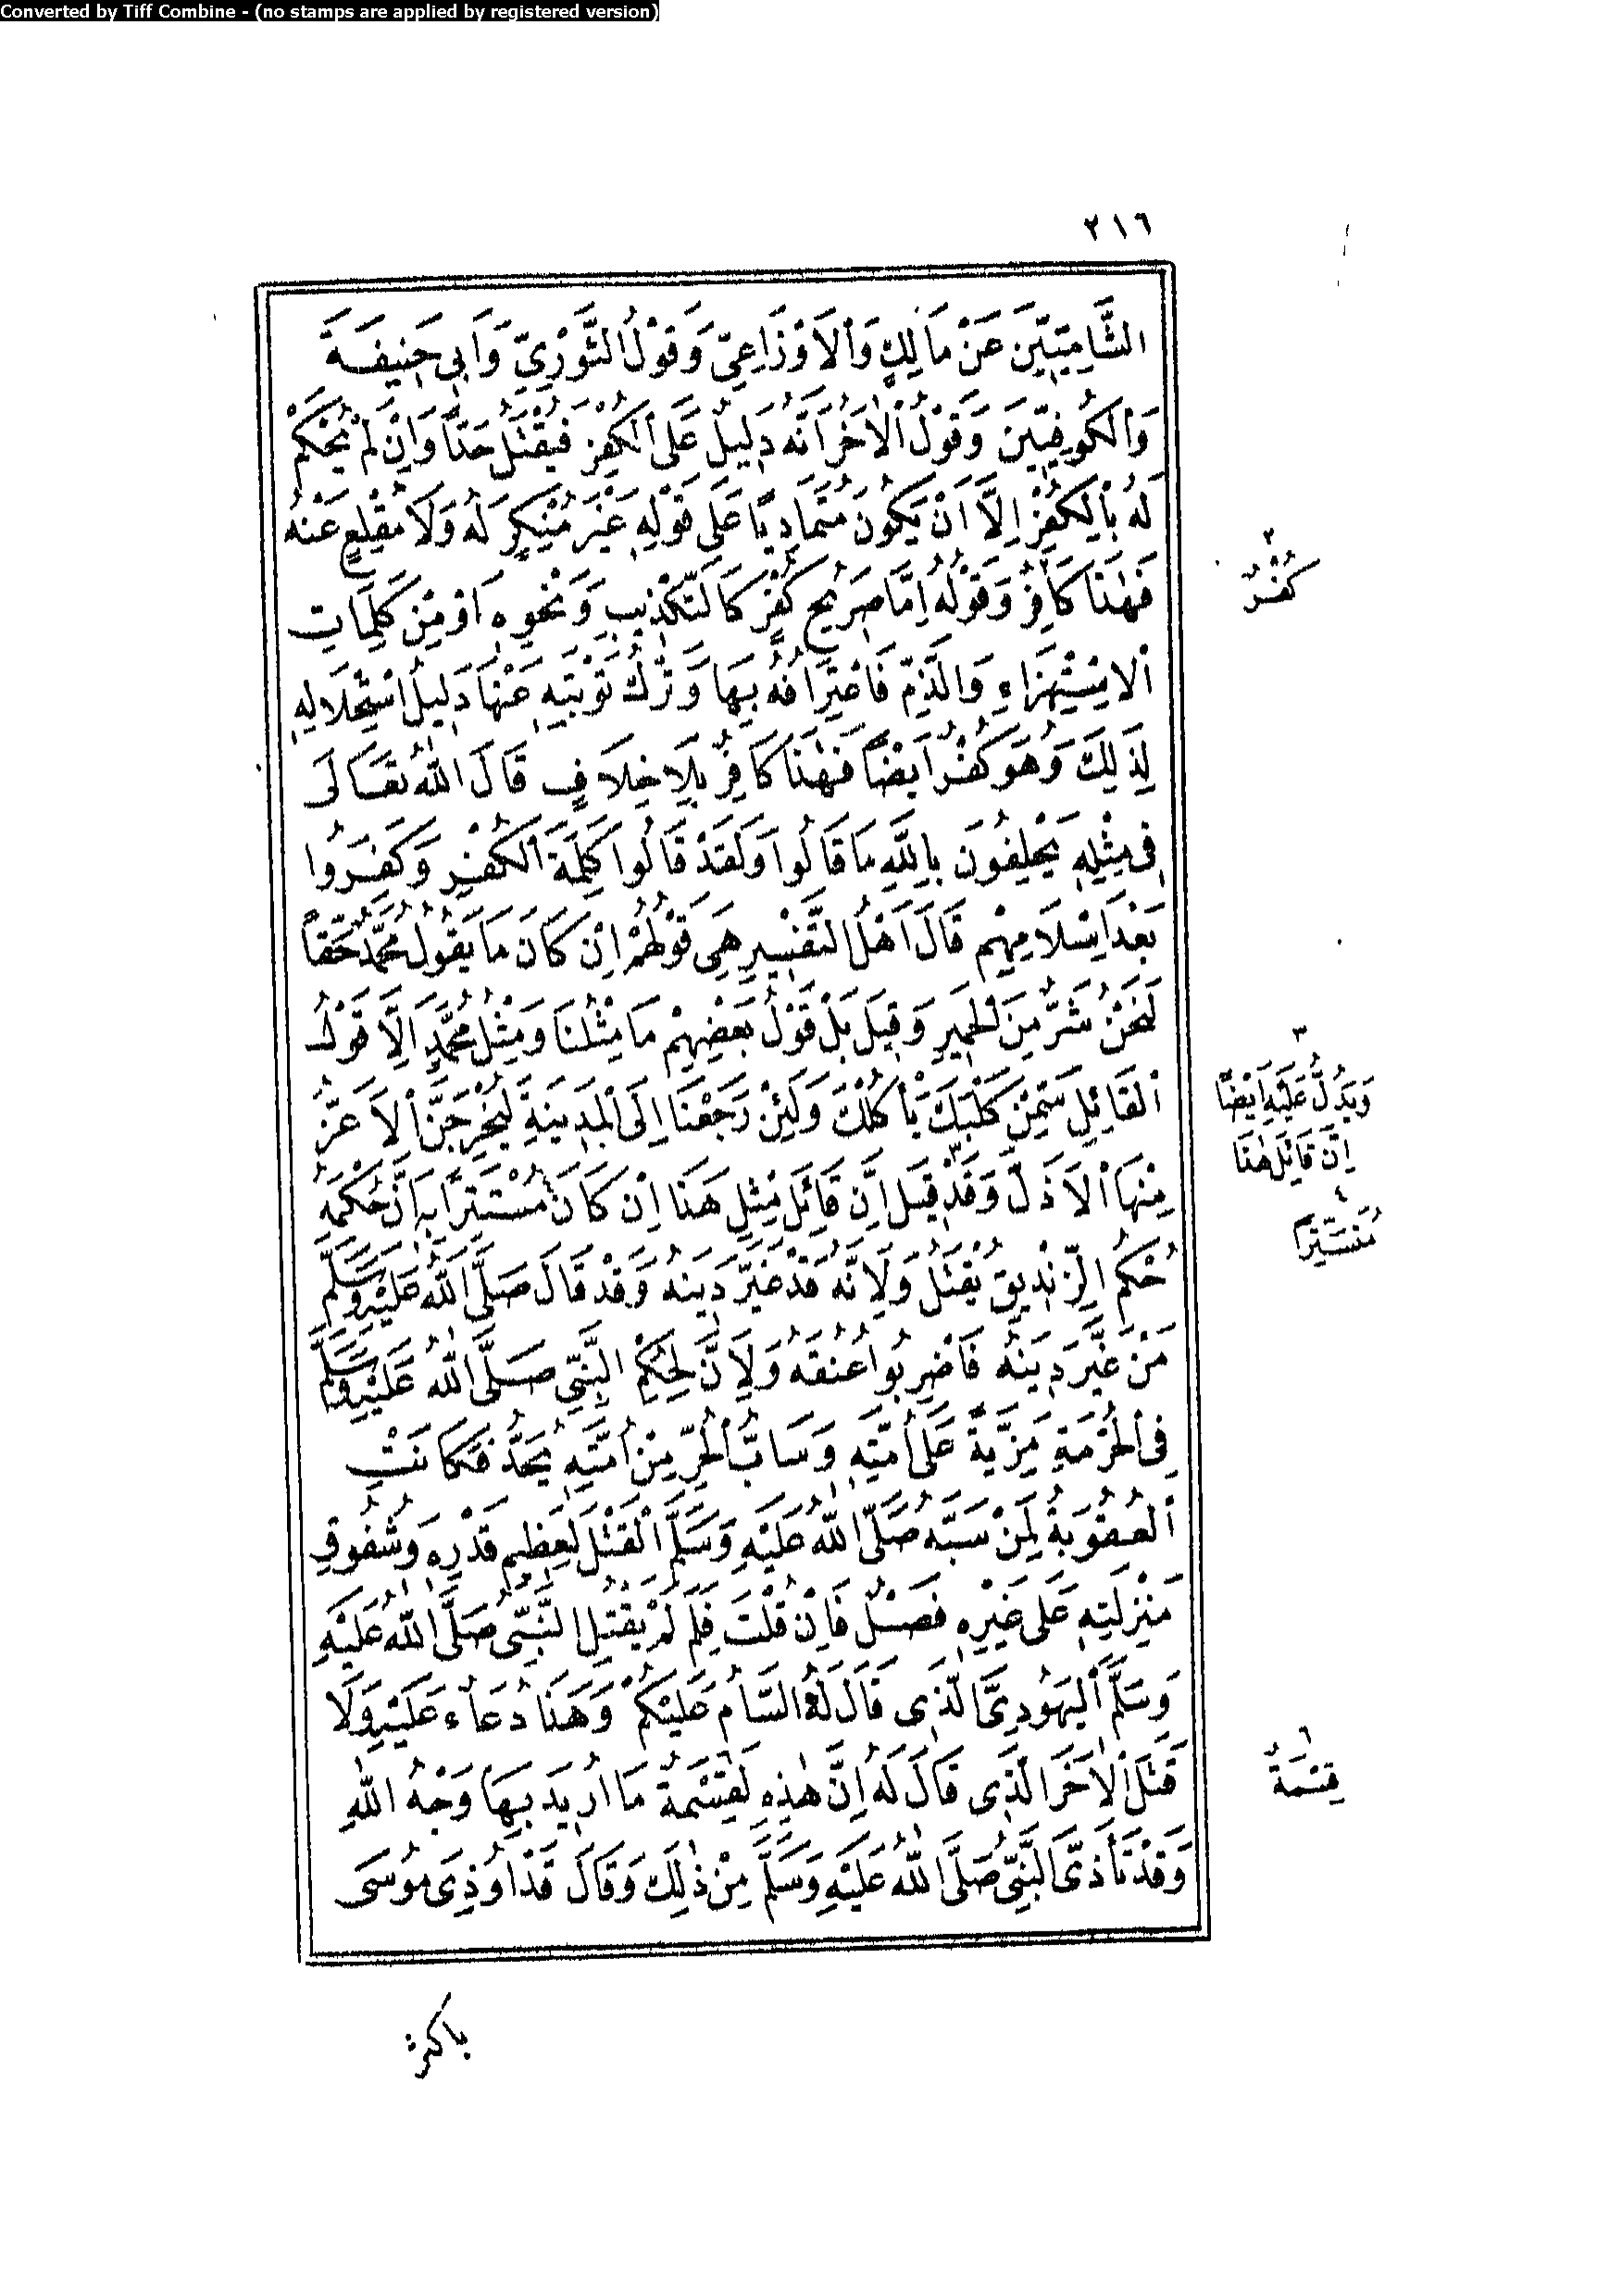 Converted by Tiff Combine - (no stamps are applied by registered version)
٢١٦
الشَّامِيِّينَ عَنْ مَالِكٍ وَالْأَوْزَاعِيِّ وَقَوْلُ الثَّوْرِيِّ وَأَبِي حَنِيفَةَ
وَالْكُوفِيِّينَ وَقَوْلُ الْآخَرِ أَنَّهُ دَلِيلٌ عَلَى الْكُفْرِ فَيُقْتَلُ حَدًّا وَإِنْ لَمْ يُحْكَمْ
لَهُ بِالْكُفْرِ إِلَّا أَنْ يَكُونَ مُتَمَادِيًا عَلَى قَوْلِهِ غَيْرَ مُنْكِرٍ لَهُ وَلَا مُقْلِعٍ عَنْهُ
فَهٰذَا كَافِرٌ وَقَوْلُهُ إِمَّا صَرِيحُ كُفْرٍ كَالتَّكْذِيبِ وَنَحْوِهِ أَوْ مِنْ كَلِمَاتِ
الْاِسْتِهْزَاءِ وَالذَّمِّ فَاعْتِرَافُهُ بِهَا وَتَرْكُ تَوْبَتِهِ عَنْهَا دَلِيلُ اسْتِحْلَالِهِ
لِذَلِكَ وَهُوَ كُفْرٌ أَيْضًا فَهٰذَا كَافِرٌ بِلَا خِلَافٍ قَالَ اللهُ تَعَالَى
فِي مِثْلِهِ يَحْلِفُونَ بِاللَّهِ مَا قَالُوا وَلَقَدْ قَالُوا كَلِمَةَ الْكُفْرِ وَكَفَرُوا
بَعْدَ إِسْلَامِهِمْ قَالَ أَهْلُ التَّفْسِيرِ هِيَ قَوْلُهُمْ إِنْ كَانَ مَا يَقُولُ مُحَمَّدٌ حَقًّا
لَنَحْنُ شَرٌّ مِنَ الْحَمِيرِ وَقِيلَ بَلْ قَوْلُ بَعْضِهِمْ مَا مِثْلُنَا وَمِثْلُ مُحَمَّدٍ إِلَّا قَوْلُ
الْقَائِلِ سَمِّنْ كَلْبَكَ يَأْكُلْكَ وَلَئِنْ رَجَعْنَا إِلَى الْمَدِينَةِ لَيُخْرِجَنَّ الْأَعَزُّ
مِنْهَا الْأَذَلَّ وَقَدْ قِيلَ إِنَّ قَائِلَ مِثْلِ هَذَا إِنْ كَانَ مُسْتَتِرًا بِهِ أَنَّ حُكْمَهُ
حُكْمُ الزِّنْدِيقِ يُقْتَلُ وَلِأَنَّهُ قَدْ غَيَّرَ دِينَهُ وَقَدْ قَالَ صَلَّى اللهُ عَلَيْهِ وَسَلَّمَ
مَنْ غَيَّرَ دِينَهُ فَاضْرِبُوا عُنُقَهُ وَلِأَنَّ لِحُكْمِ النَّبِيِّ صَلَّى اللهُ عَلَيْهِ وَسَلَّمَ
فِي الْحُرْمَةِ مَزِيَّةً عَلَى أُمَّتِهِ وَسَابُّ الْحُرِّ مِنْ أُمَّتِهِ يُحَدُّ فَكَانَتِ
الْعُقُوبَةُ لِمَنْ سَبَّهُ صَلَّى اللهُ عَلَيْهِ وَسَلَّمَ الْقَتْلَ لِعَظِيمِ قَدْرِهِ وَشُفُوفِ
مَنْزِلَتِهِ عَلَى غَيْرِهِ فَصْلٌ فَإِنْ قُلْتَ فَلِمَ لَمْ يَقْتُلِ النَّبِيُّ صَلَّى اللهُ عَلَيْهِ
وَسَلَّمَ الْيَهُودِيَّ الَّذِي قَالَ لَهُ السَّامُ عَلَيْكُمْ وَهَذَا دُعَاءٌ عَلَيْهِ وَلَا
قَتَلَ الْآخَرَ الَّذِي قَالَ لَهُ إِنَّ هٰذِهِ لَقِسْمَةٌ مَا أُرِيدَ بِهَا وَجْهُ اللهِ
وَقَدْ تَأَذَّى النَّبِيُّ صَلَّى اللهُ عَلَيْهِ وَسَلَّمَ مِنْ ذٰلِكَ وَقَالَ قَدْ أُوذِيَ مُوسَى
بأكثر
٢
كُفْرٌ
٣
وَيَدُلُّ عَلَيْهِ أَيْضًا
إِنَّ قَائِلَ هٰذَا
٤
مُتَسَتِّرًا
٦
قِسْمَةٌ